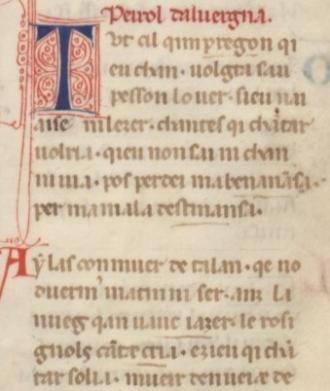 Peirol daluergna.
Tut cil qim pregon qi
eu chan. uolgra sau
pesson lo uer. sieu nai
aise ni lezer. chantes qi chantar
uolria. qieu non sai ni chan
ni uia. pos perdei ma benanansa.
per ma mala destinansa.
Ay las con muer de talan. qe no
duerm matin ni ser. anz la
nueg qan uauc iazer. le rosi
gnols cante cria. e ieu qi chan
tar solia. muer denueia e de